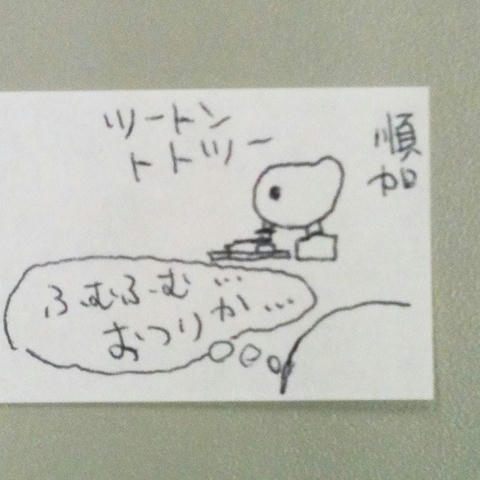 順
加
ツートン
トトツー
ふむふむ…
おつりか…